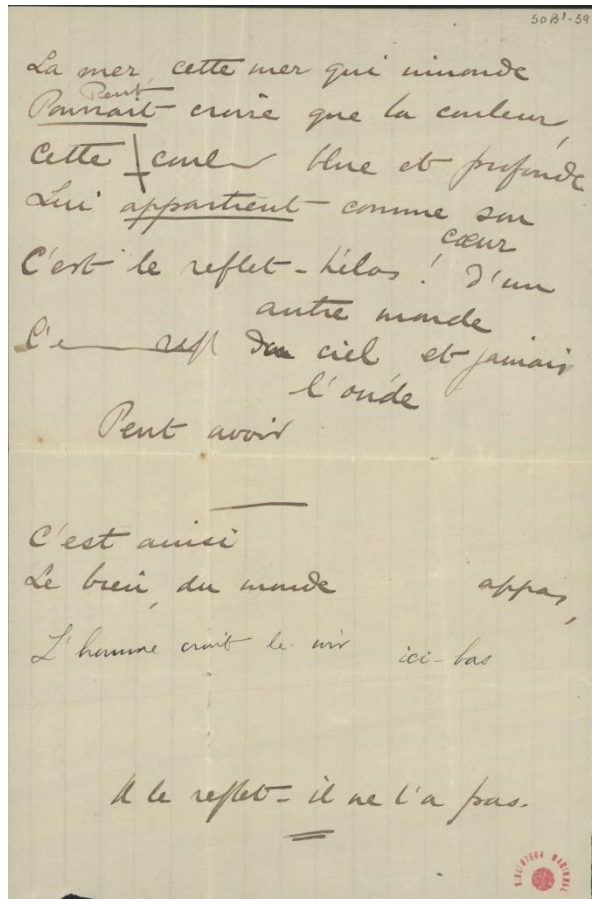 50B1-59
La mer, cette mer qui m'inonde
Peut
Pourrait croire que la couleur,
Cette coule blue et profonde
Lui appartient comme son
cœur
C'est le reflet - hélas! d'un
autre monde
C'e refl d'un ciel et jamais
l'onde
Peut avoir
C'est ainsi
Le bien, du monde appas,
L'homme croit le voir ici-bas
Il le reflet - il ne l'a pas.
BIBLIOTECA NACIONAL